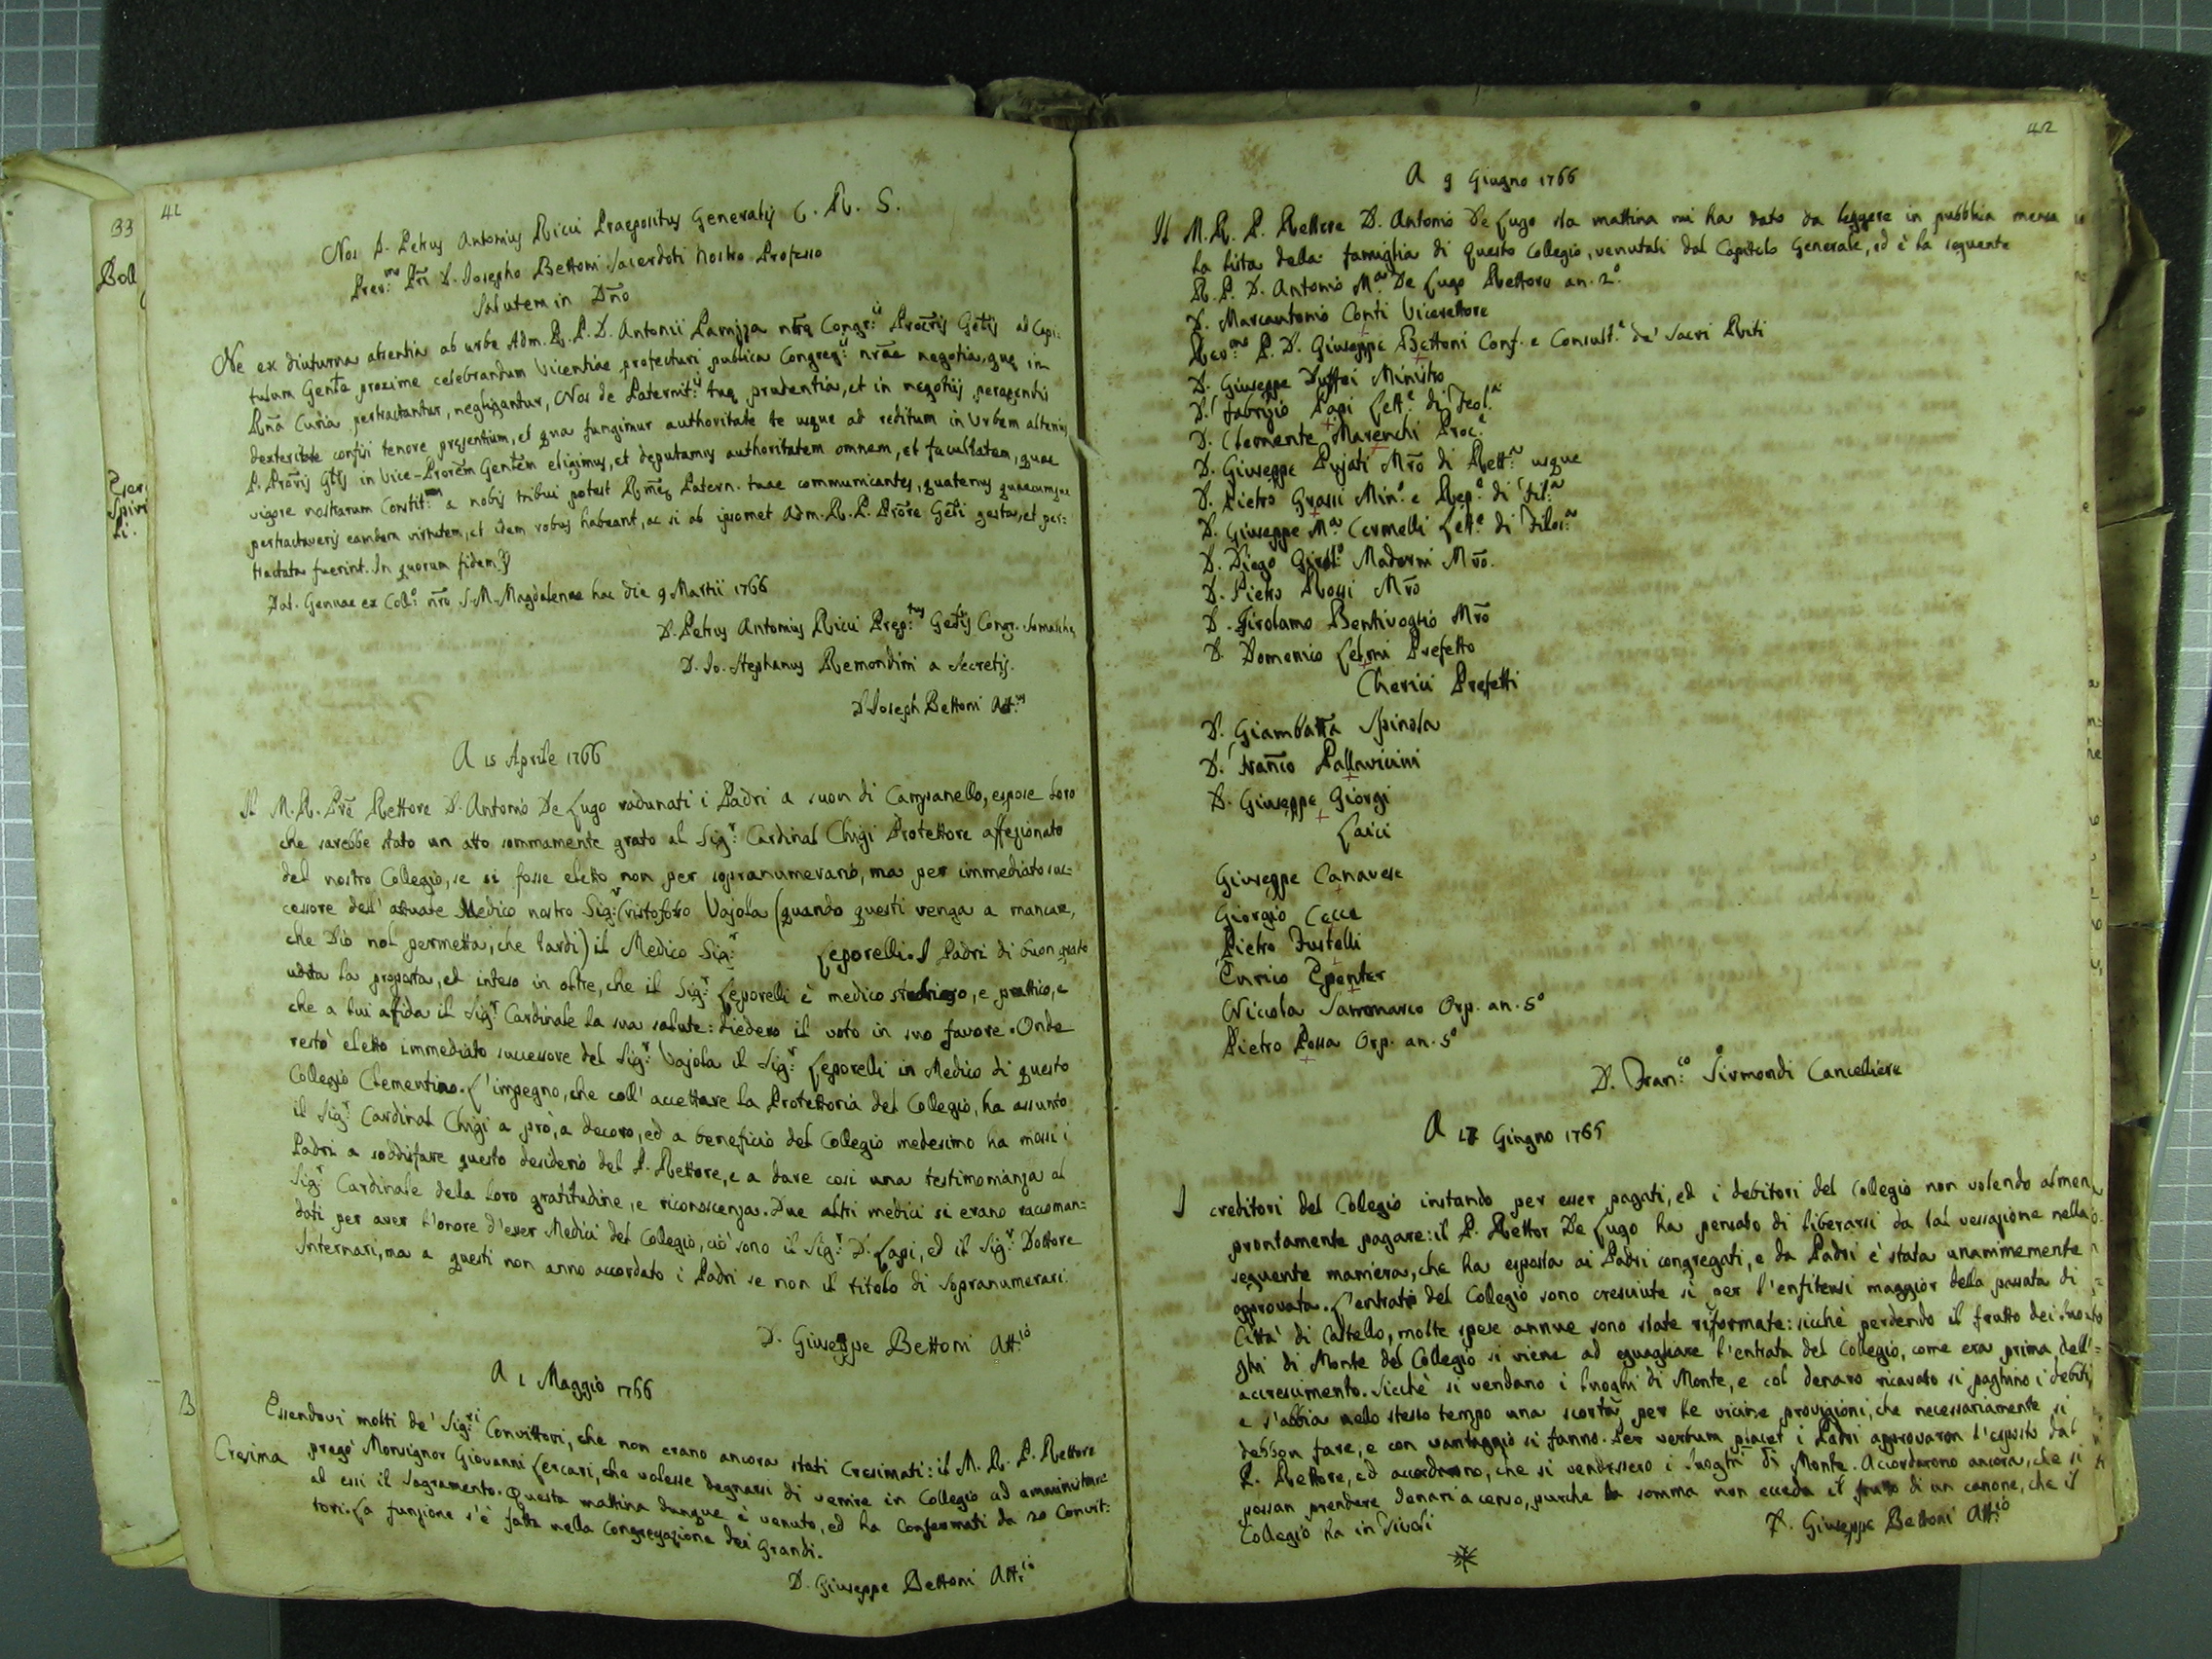 41
Nos D. Petrus Antonius Ricci Praepositus Generalis C. R. S.
Prev: Pri D. Josepho Bettoni Sacerdoti Nostro Professo
Salutem in Dno
Ne ex diuturna absentia ab urbe Adm. R. P. D. Antonii Panizza ntrq Congr: Procris Gefis ad Capi:
tulum Genle proxime celebrandum Vicentiae profecturi publica Congreg: nrae negotia, quę in
Rna Curia pertractantur, negligantur, Nos de Paternit: tuę prudentia, et in negotiis peragendis
dexteritate confisi tenore pręsentium, et qua fungimur authoritate te usque ad reditum in Urbem alterius
P. Proris Glis in Vice-Prorem Genlem eligimus, et deputamus authoritatem omnem, et facultatem, quae
vigore nostrarum Constit: a nobis tribui potest Rmę Patern. tuae communicantes, quatenus quaecumque
pertractaveris eamdem virtutem, et idem robur habeant, ac si ab ipsomet Adm. R. P. Prore Genli gesta, et per:
tractata fuerint. In quorum fidem
Dat. Genuae ex Coll: nro S. M. Magdalenae hac die 9 Martii 1766
D. Petrus Antonius Ricci Prep: Gelis Congr. Somaschę
D. Jo. Stephanus Remondini a Secretis.
D Joseph Bettoni Att:
A 15 Aprile 1766
Il M. R. Pre Rettore D. Antonio De Lugo radunati i Padri a suon di Campanello, espose loro
che sarebbe stato un atto sommamente grato al Sig: Cardinal Chigi Protettore affezionato
del nostro Collegio, se si fosse eletto non per sopranumerario, ma per immediato suc=
cessore dell' attuale Medico nostro Sig: Cristoforo Vajola (quando questi venga a mancare,
che Dio nol permetta, che tardi) il Medico Sig: Leporelli. I Padri di buon grado
udita la proposta, ed inteso in oltre, che il Sig: Leporelli è medico studioso, e prattico, e
che a lui affida il Sig: Cardinale la sua salute: diedero il voto in suo favore. Onde
restò eletto immediato successore del Sig: Vajola il Sig: Leporelli in Medico di questo
Collegio Clementino. L'impegno, che coll' accettare la Protettoria del Collegio, ha assunto
il Sig: Cardinal Chigi a prò, a decoro, ed a beneficio del Collegio medesimo ha mossi i
Padri a soddisfare questo desiderio del P. Rettore, e a dare così una testimonianza al
Sig: Cardinale della loro gratitudine, e riconoscenza. Due altri medici si erano raccoman=
dati per aver l'onore d'esser Medici del Collegio, ciò sono il Sig: D. Lapi, ed il Sig: Dottore
Internari, ma a questi non anno accordato i Padri se non il titolo di Sopranumerari.
D. Giuseppe Bettoni Att:
A 1 Maggio 1766
B
Cresima
Essendovi molti de' Sig: Convittori, che non erano ancora stati Cresimati: il M. R. P. Rettore
pregò Monsignor Giovanni Lercari, che volesse degnarsi di venire in Collegio ad amministrare
ad essi il Sagramento. Questa mattina dunque è venuto, ed ha Confermati da 20 Convit:
tori. La funzione s'è fatta nella Congregazione dei Grandi.
D. Giuseppe Bettoni Att:
42
A 9 Giugno 1766
Il M. R. P. Rettore D. Antonio De Lugo sta mattina mi ha dato da leggere in pubblica mensa
la lista della famiglia di questo Collegio, venutali dal Capitolo Generale, ed è la seguente
R. P. D. Antonio M: De Lugo Rettore an. 2°
D. Marcantonio Conti Vicerettore
Rev: P. D. Giuseppe Bettoni Conf. e Consult: de' Sacri Riti
D. Giuseppe Duffoi Ministro
D. Fabrizio Papi Lett: di Teol:
D. Clemente Marenchi Proc:
D. Giuseppe Pujati Mro di Rett: usque
D. Pietro Grassi Min: e Rep: di Fil:
D. Giuseppe M: Cermelli Lett: di Filos:
D. Diego Girol: Maderni Mro.
D. Pietro Rossi Mro
D. Girolamo Bentivoglio Mro
D. Domenico Lelmi Prefetto
Cherici Prefetti
D. Giambatta Spinola
D. Franco Pallavicini
D. Giuseppe Giorgi
Laici
Giuseppe Canavese
Giorgio Cecca
Pietro Fustelli
Enrico Eponter
Niccola Sammarco Osp. an. 5°
Pietro Possa Osp. an. 5°
D. Fran: Sirmondi Cancelliere
A 17 Giugno 1765
I creditori del Collegio instando per esser pagati, ed i debitori del Collegio non volendo almen
prontamente pagare: il P. Rettor De Lugo ha pensato di liberarsi da tal vessazione nella
seguente maniera, che ha esposta ai Padri congregati, e da Padri è stata unanimemente
approvata. L'entrate del Collegio sono cresciute sì per l'enfiteusi maggior della passata di
Città di Castello, molte spese annue sono state riformate: sicchè perdendo il frutto dei luo
ghi di Monte del Collegio si viene ad eguagliare l'entrata del Collegio, come era prima dell'
accrescimento. Sicchè si vendano i luoghi di Monte, e col denaro ricavato si paghino i debiti,
e s'abbia nello stesso tempo una scorta per le vicine provigioni, che necessariamente si
debbon fare, e con vantaggio si fanno. Per verbum placet i Padri approvaron l'esposto dal
P. Rettore, ed accordarono, che si vendessero i luoghi di Monte. Accordarono ancora, che si
possan prendere denari a censo, purche la somma non ecceda il frutto di un canone, che il
Collegio ha in Tivoli
D. Giuseppe Bettoni Att: